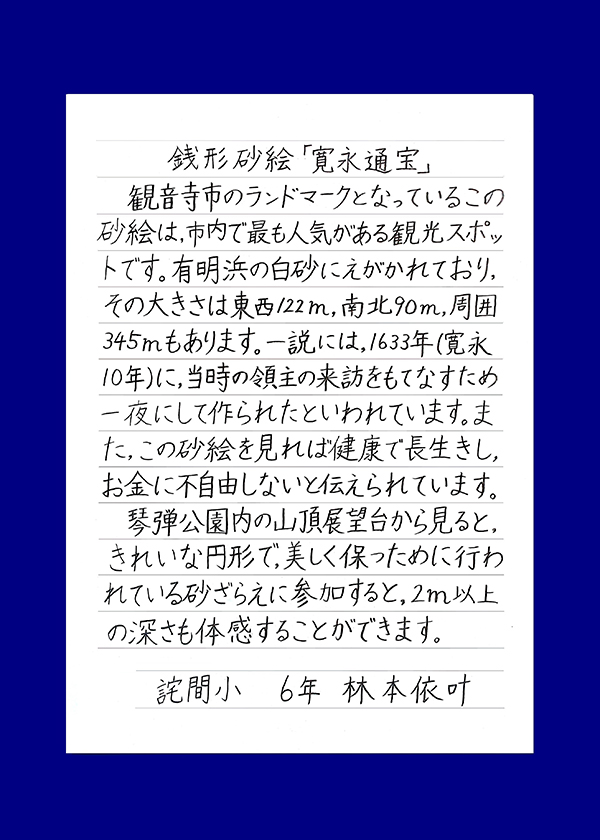 銭形砂絵「寛永通宝」
観音寺市のランドマークとなっているこの
砂絵は,市内で最も人気がある観光スポッ
トです。有明浜の白砂にえがかれており,
その大きさは東西122m,南北90m,周囲
345mもあります。一説には,1633年(寛永
10年)に,当時の領主の来訪をもてなすため
一夜にして作られたといわれています。ま
た,この砂絵を見れば健康で長生きし,
お金に不自由しないと伝えられています。
琴弾公園内の山頂展望台から見ると,
きれいな円形で,美しく保つために行わ
れている砂ざらえに参加すると,2m以上
の深さも体感することができます。
詫間小 6年 林本依叶